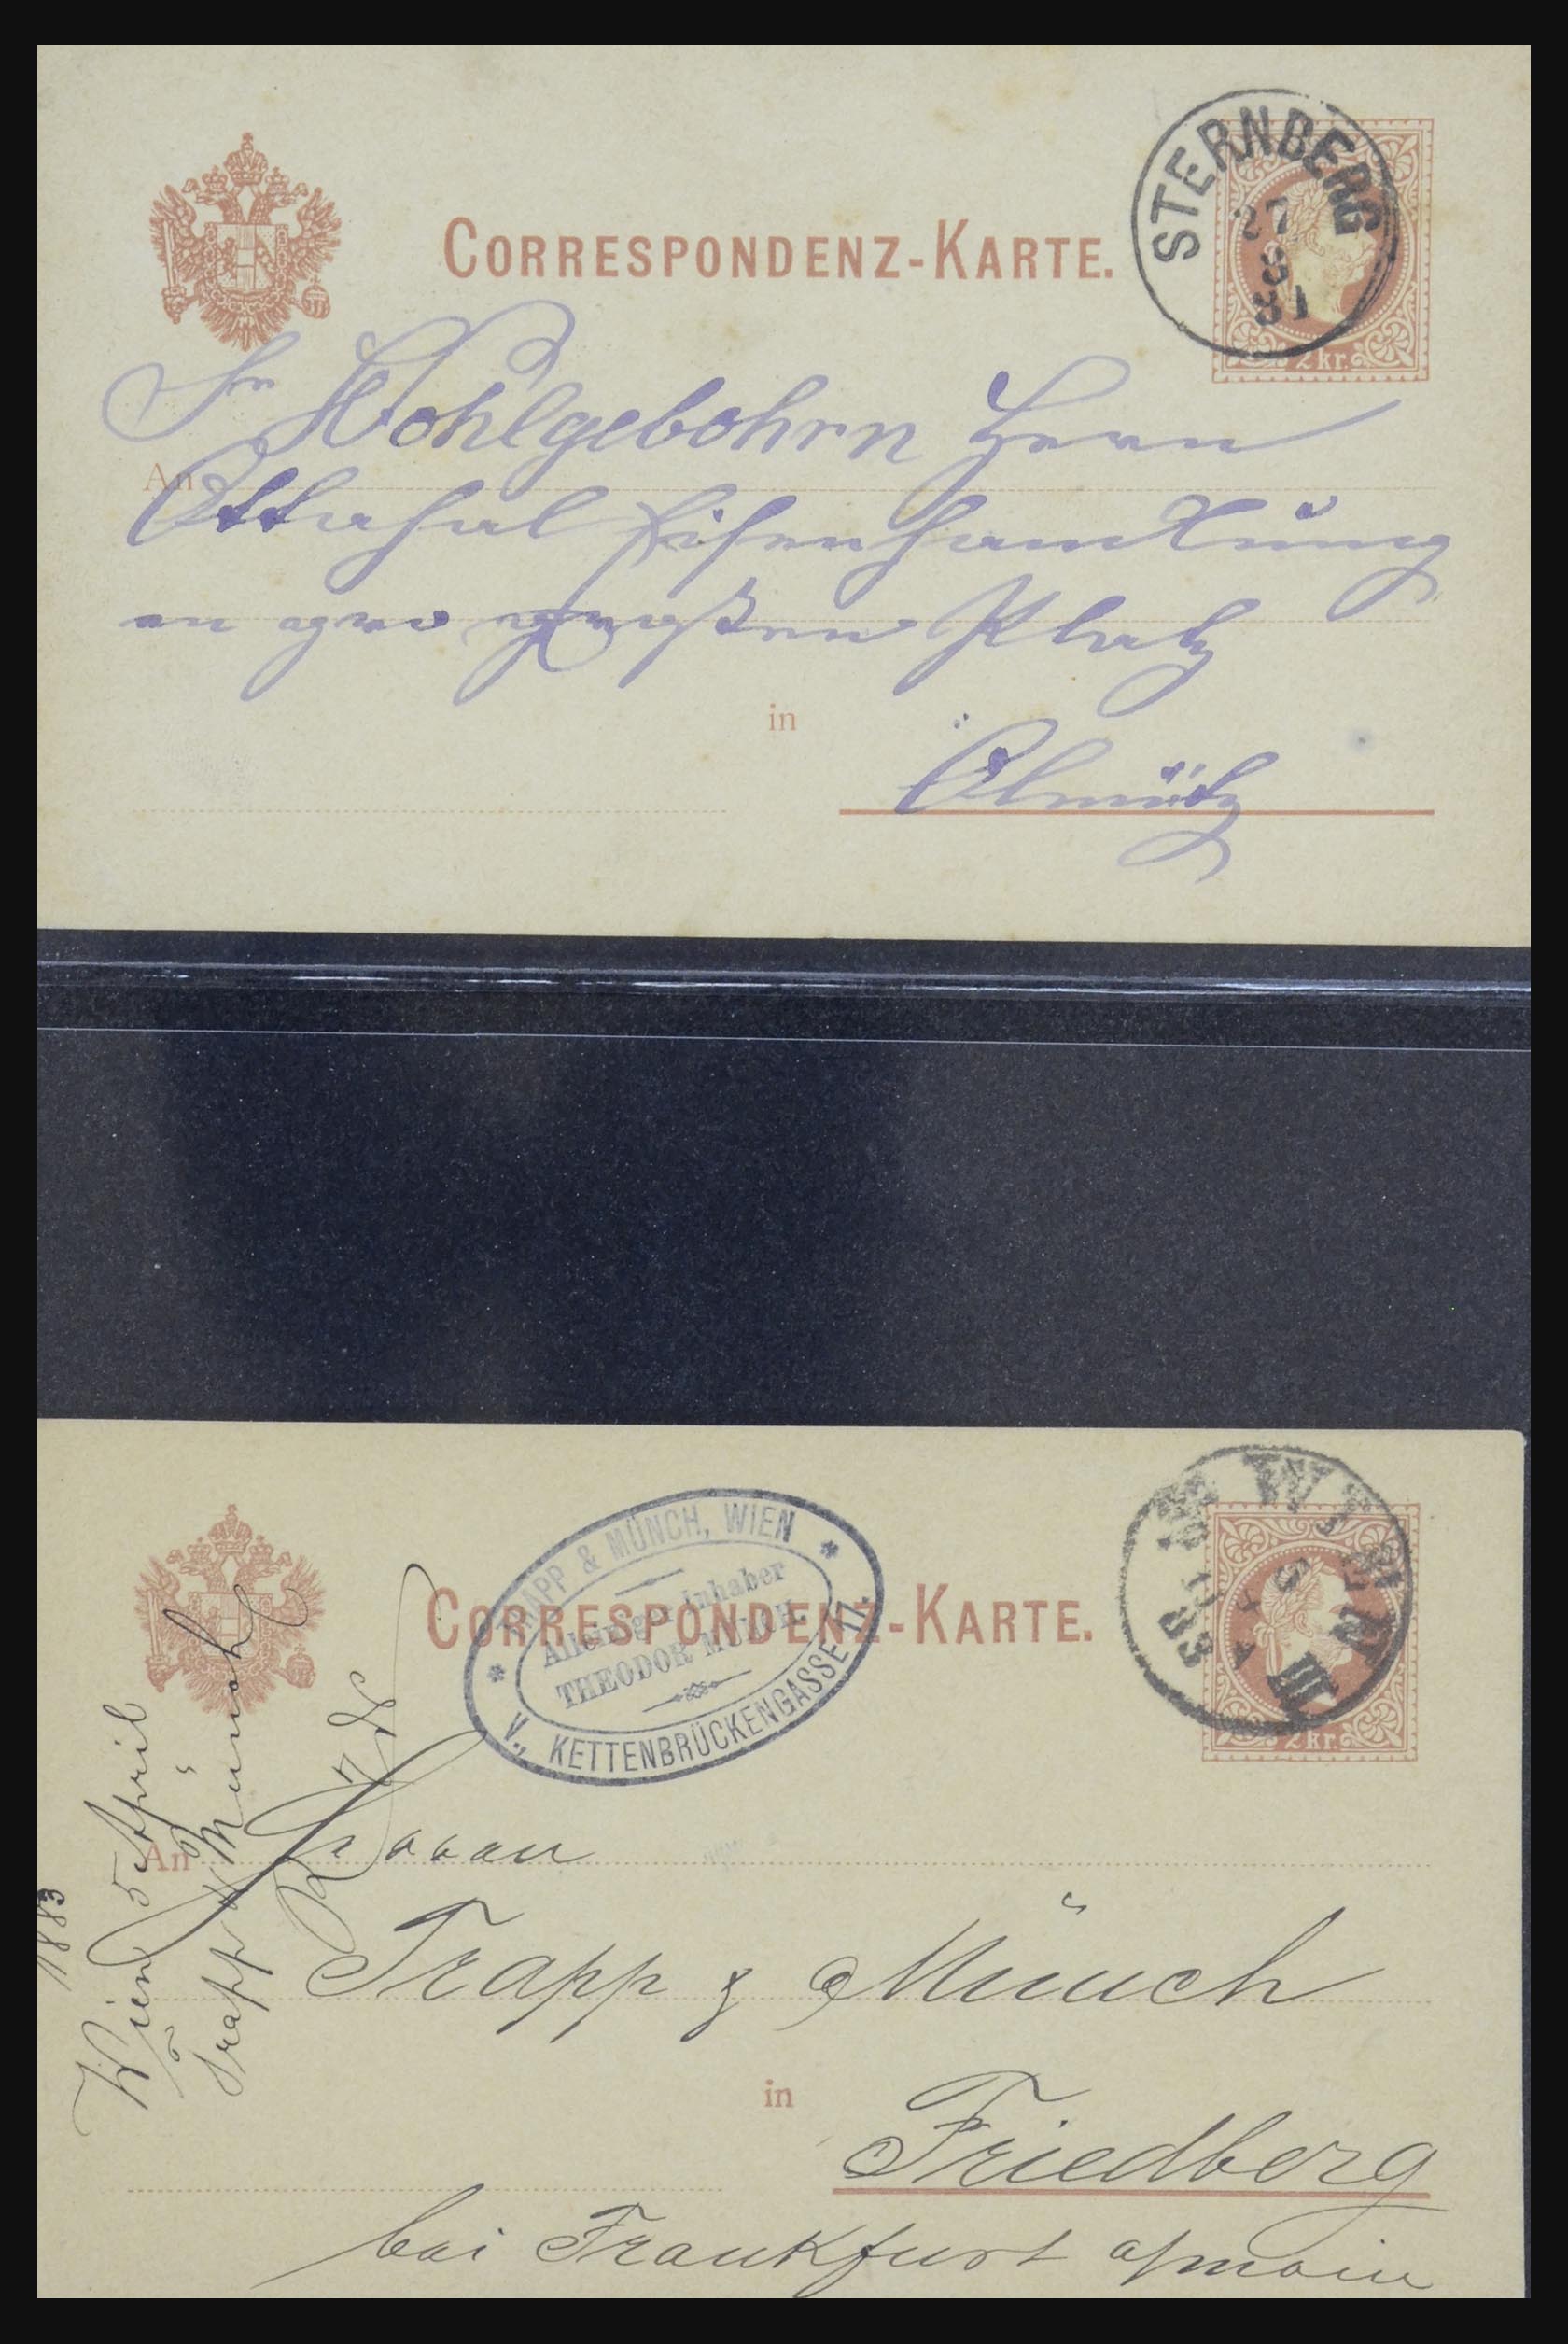 CORRESPONDENZ-KARTE.
STERNBERG
27
8
81
2 kr.
Sr Wohlgebohrn Herrn
An
Ottahal Eisenhandlung
en gro großen Platz
in
Olmütz
TRAPP & MÜNCH, WIEN
Alleiniger Inhaber
THEODOR MÜNCH.
V., KETTENBRÜCKENGASSE 17.
CORRESPONDENZ-KARTE.
WIEN III
5
4
83
2 kr.
1883
Wien 5 April
Trapp & Münch
An
Herren
Trapp & Münch
in
Friedberg
bei Frankfurt a/main